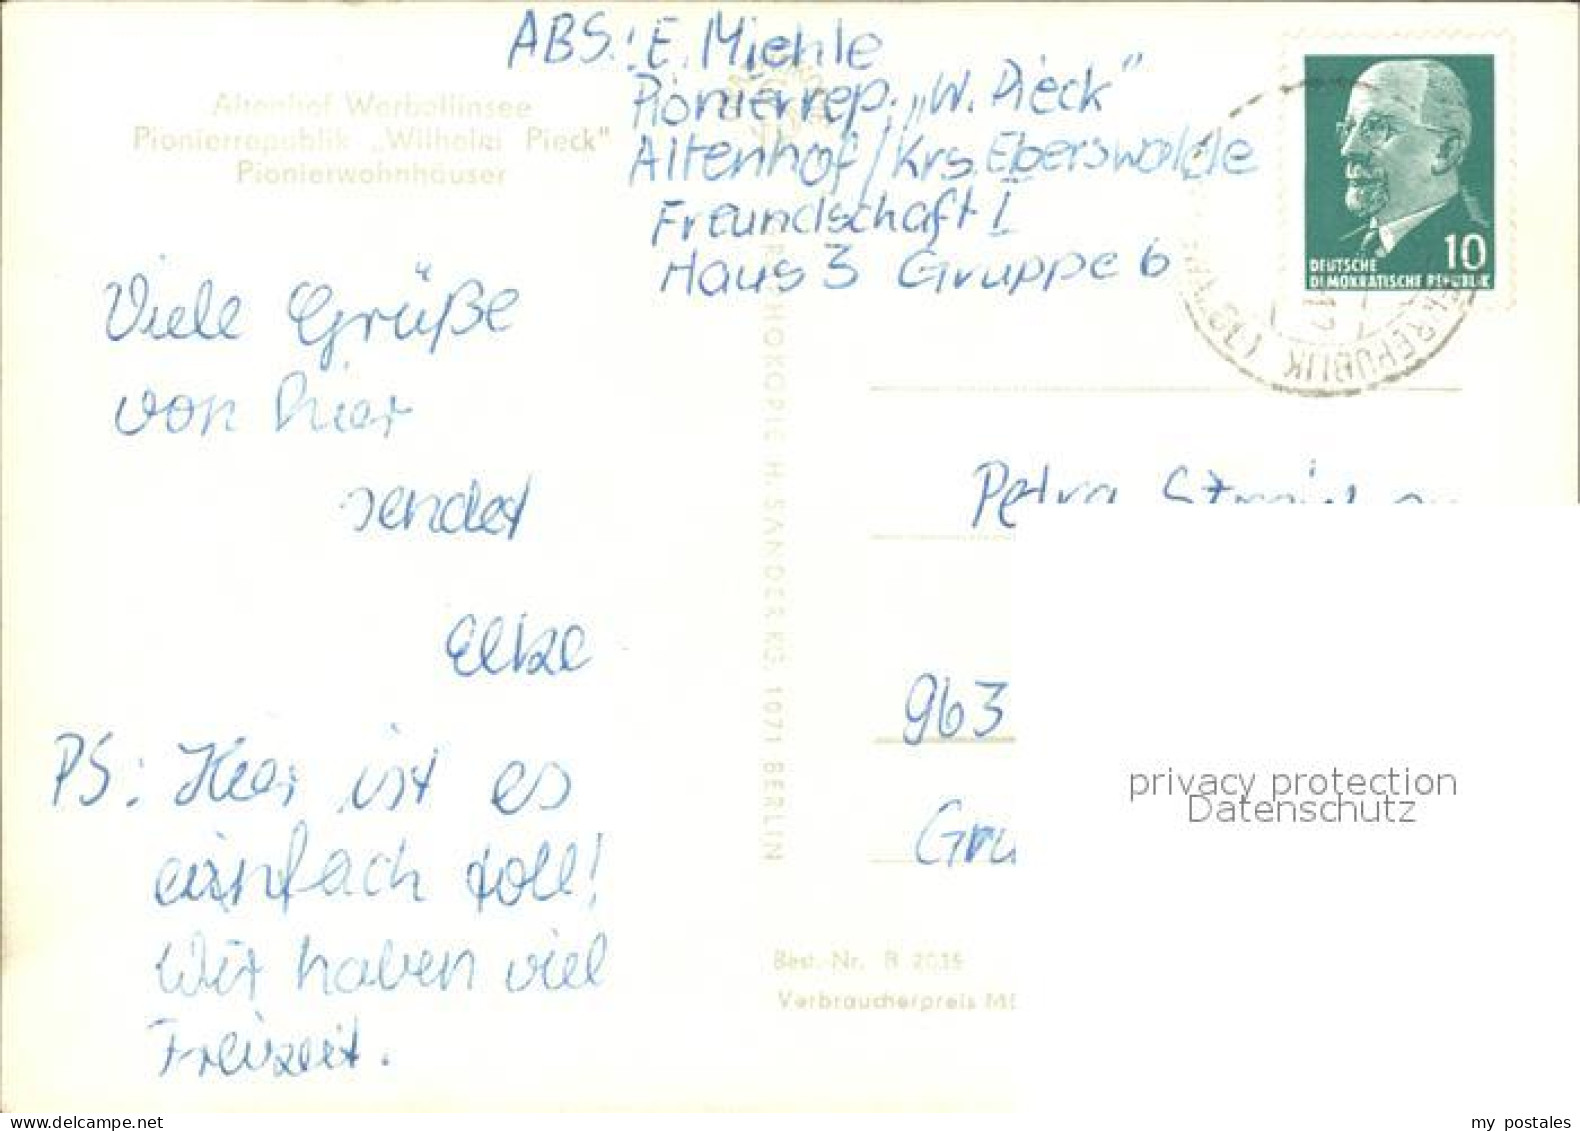 ABS.: E. Miehle
Pionierrep. „W. Pieck"
Altenhof / Krs. Eberswalde
Freundschaft I
Haus 3 Gruppe 6
Altenhof Werbellinsee
Pionierrepublik „Wilhelm Pieck"
Pionierwohnhäuser
10
DEUTSCHE
DEMOKRATISCHE REPUBLIK
REPUBLIK
Viele Grüße
von hier
sendet
Elke
PS: Hier ist es
einfach toll!
Wir haben viel
Freizeit.
H. SANDER KG, 1071 BERLIN
Petra
963
Gru
privacy protection
Datenschutz
Best.-Nr. B 2015
Verbraucherpreis
www.delcampe.net
my postales